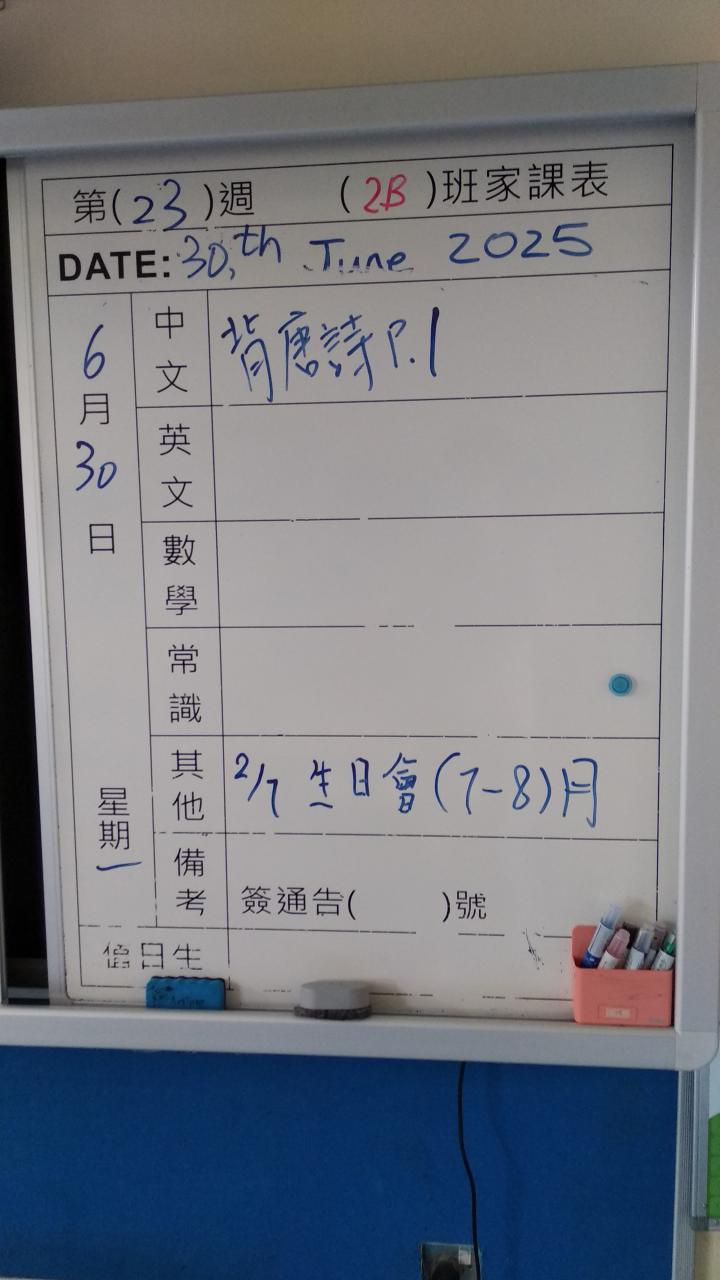 第(23)週 (2B)班家課表
DATE: 30,th June 2025
6月30日 星期一
中文 背唐詩 P.1
英文
數學
常識
其他 2/7 生日會(7-8)月
備考 簽通告( )號
值日生